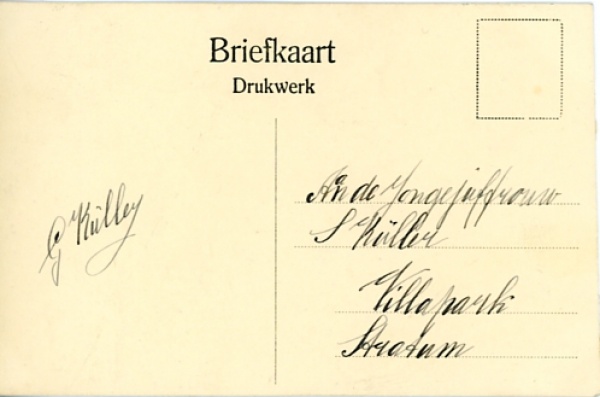 Briefkaart
Drukwerk
G Külley
An de Jongejuffrouw
S Küller
Villapark
Stratum